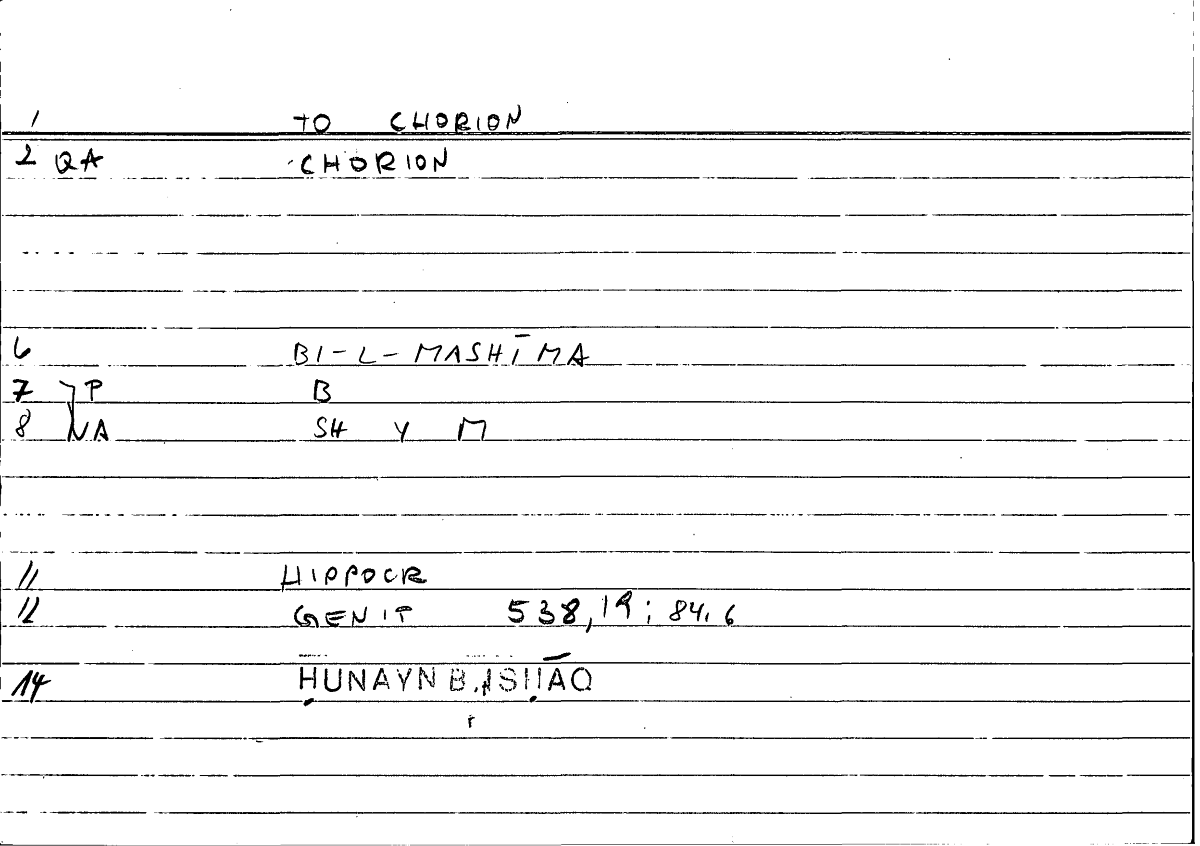 1 TO CHORION
2 QA CHORION
6 BI-L-MASHĪMA
7 P B
8 NA SH Y M
11 HIPPOCR
12 GENIT 538,19; 84,6
14 ḤUNAYN B. ISḤĀQ